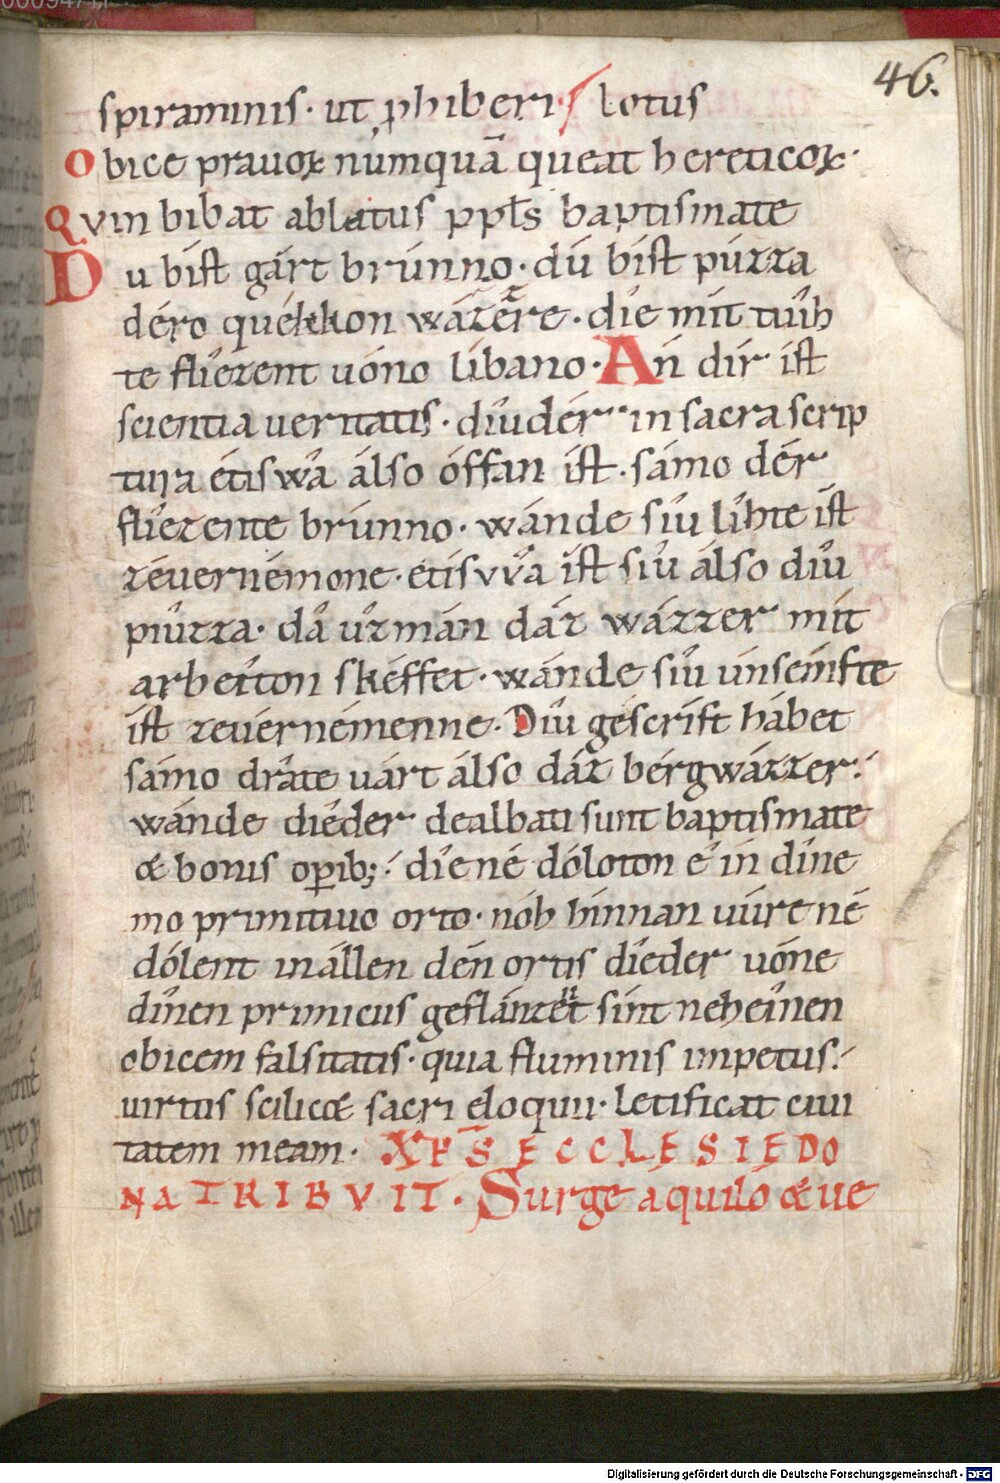 46.
spiraminis· ut ꝓhiberi· lotus
obice prauoꝝ numquā queat hereticoꝝ·
Qvin bibat ablatus ppl̄s baptismate
Du bist gárt brúnno· dû bist pútza
déro quékkon wázzere· die mit tuîh
te flîezent uóno líbano· An dír ist
scientia ueritatis· dîu dér in sacra scrip
tura étiswâ álso óffan ist· sámo dér
flîezente brúnno· wánde sîu lîhte ist
zeuernémone· étisvvâ ist sîu álso dîu
pîutza· dâ ûzmán dáz wázzer mit
arbeîton sképfet· wánde sîu únseînfte
ist zeuernémenne· Dîu gescríft hábet
sámo drâte uárt álso dáz bérgwázzer·
wánde dîeder dealbati sunt baptismate
& bonis operib;· dîe né dóloton ê in dîne
mo primitiuo orto· nóh hínnan uúre né
dólent in állen dén ortis dîeder uóne
dînen primicus geflánzet sínt neheînen
obicem falsitatis· quia fluminis impetus·
uirtus scilic& sacri eloquii· letificat ciui
tatem meam· XP̄S ECCLESIE DO
NA TRIBVIT· Surge aquiló & ue
Digitalisierung gefördert durch die Deutsche Forschungsgemeinschaft - DFG